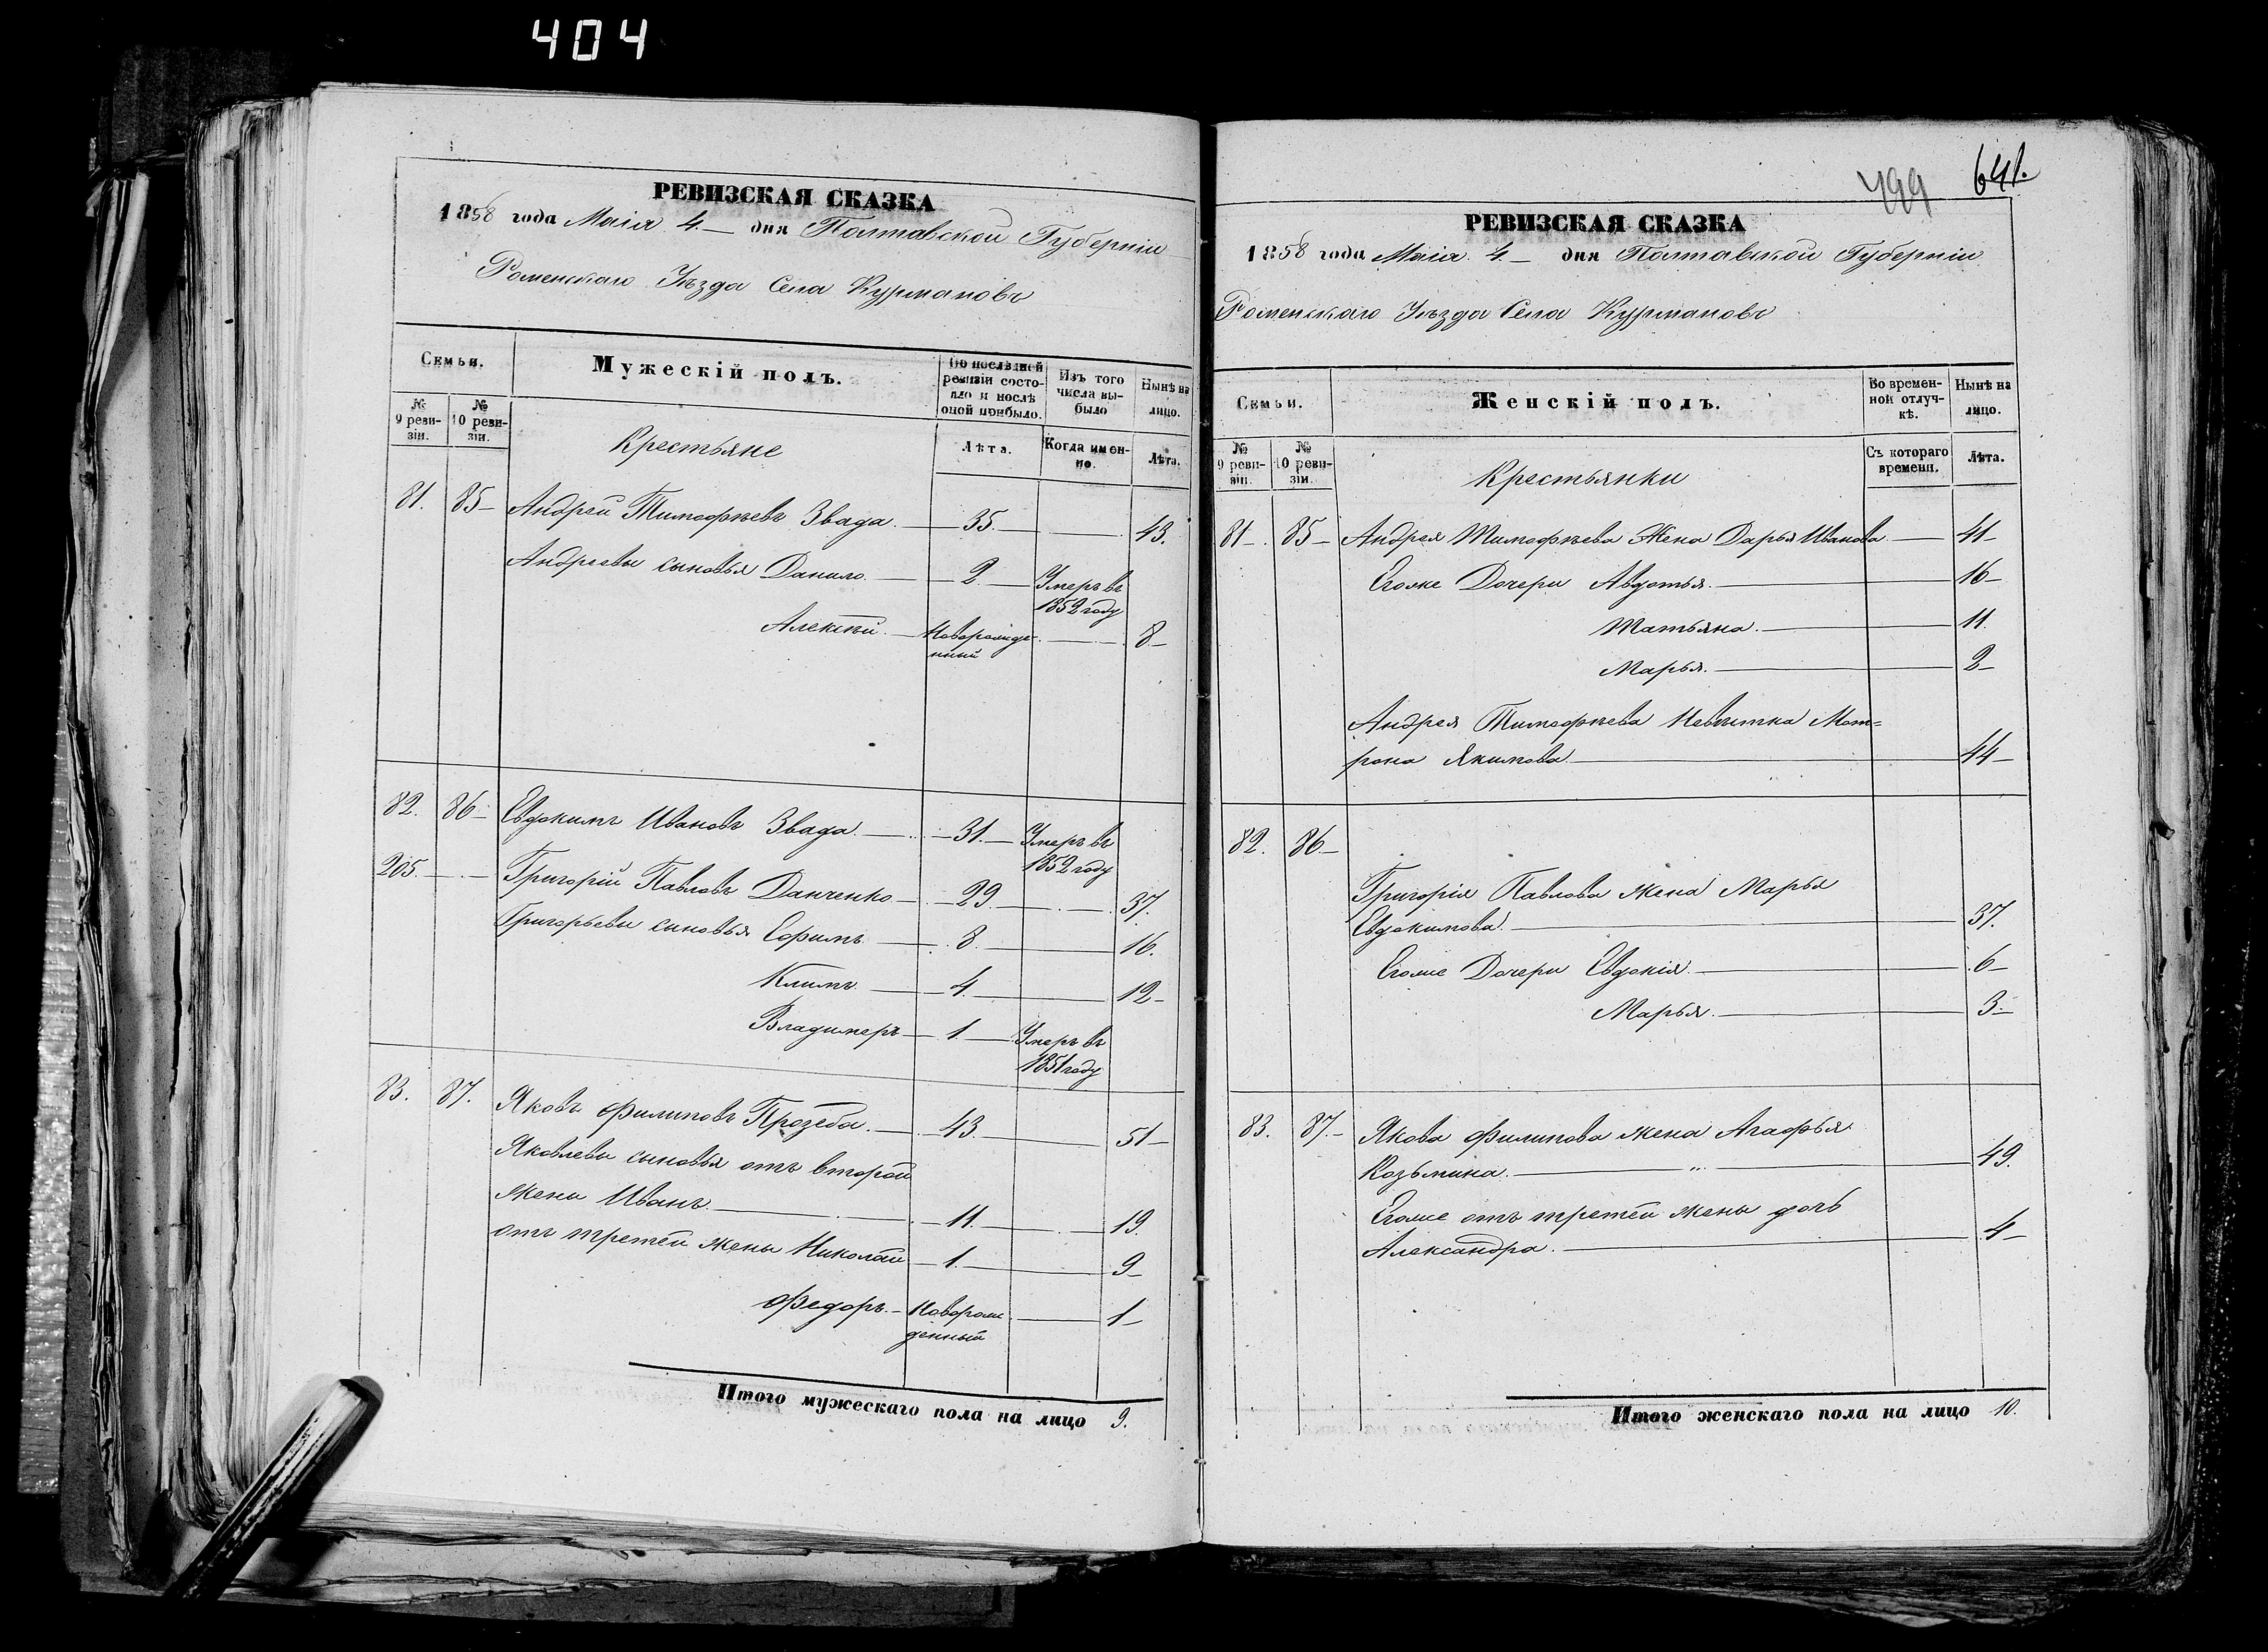 404
РЕВИЗСКАЯ СКАЗКА
1858 года Маія 4. дня Полтавской Губерніи
Роменскаго Уѣзда Села Курмановъ
Семьи.
Мужескій полъ.
По послѣдней ревизіи состояло и послѣ оной прибыло.
Изъ того числа выбыло
Нынѣ на лицо.
№ 9 ревизіи.
№ 10 ревизіи.
Крестьяне
Лѣта.
Когда именно.
Лѣта.
81. 85 Андрей Тимофѣевъ Звада 35. 43.
Андреевы сыновья Данило 2 Умеръ въ
1852 году
Алексѣй Новорожде- 8
нный
82. 86 Евдокимъ Ивановъ Звада 31. Умеръ въ
1852 году
205. Григорій Павловъ Данченко 29 37.
Григорьевы сыновья Ефимъ 8 16.
Климъ 4. 12
Владимеръ 1 Умеръ въ
1851 году
83. 87. Яковъ Филиповъ Прозеба. 43. 51
Яковлевы сыновья отъ второй
жены Иванъ 11. 19.
отъ третей жены Николай 1. 9
Федоръ.Новорож 1
денный
Итого мужескаго пола на лицо 9.
499 641.
РЕВИЗСКАЯ СКАЗКА
1858 года Маія 4. дня Полтавской Губерніи
Роменскаго Уѣзда Села Курмановъ
Семьи.
Женскій полъ.
Во временной отлучкѣ.
Нынѣ на лицо.
№ 9 ревизіи.
№ 10 ревизіи.
Крестьянки
Съ котораго времени.
Лѣта.
81 85 Андрея Тимофѣева Жена Дарья Иванова 41
Егоже Дочери Авдотья. 16
Татьяна. 11.
Марья. 2
Андрея Тимофѣева Невѣстка Мат=
рона Якимова 44
82. 86
Григорія Павлова жена Марья
Евдокимова. 37.
Егоже Дочери Евдокія. 6
Марья. 3
83. 87. Якова Филипова жена Агафья
Козьмина. „ 49.
Егоже отъ третей жены дочь
Александра. 4
Итого женскаго пола на лицо 10.